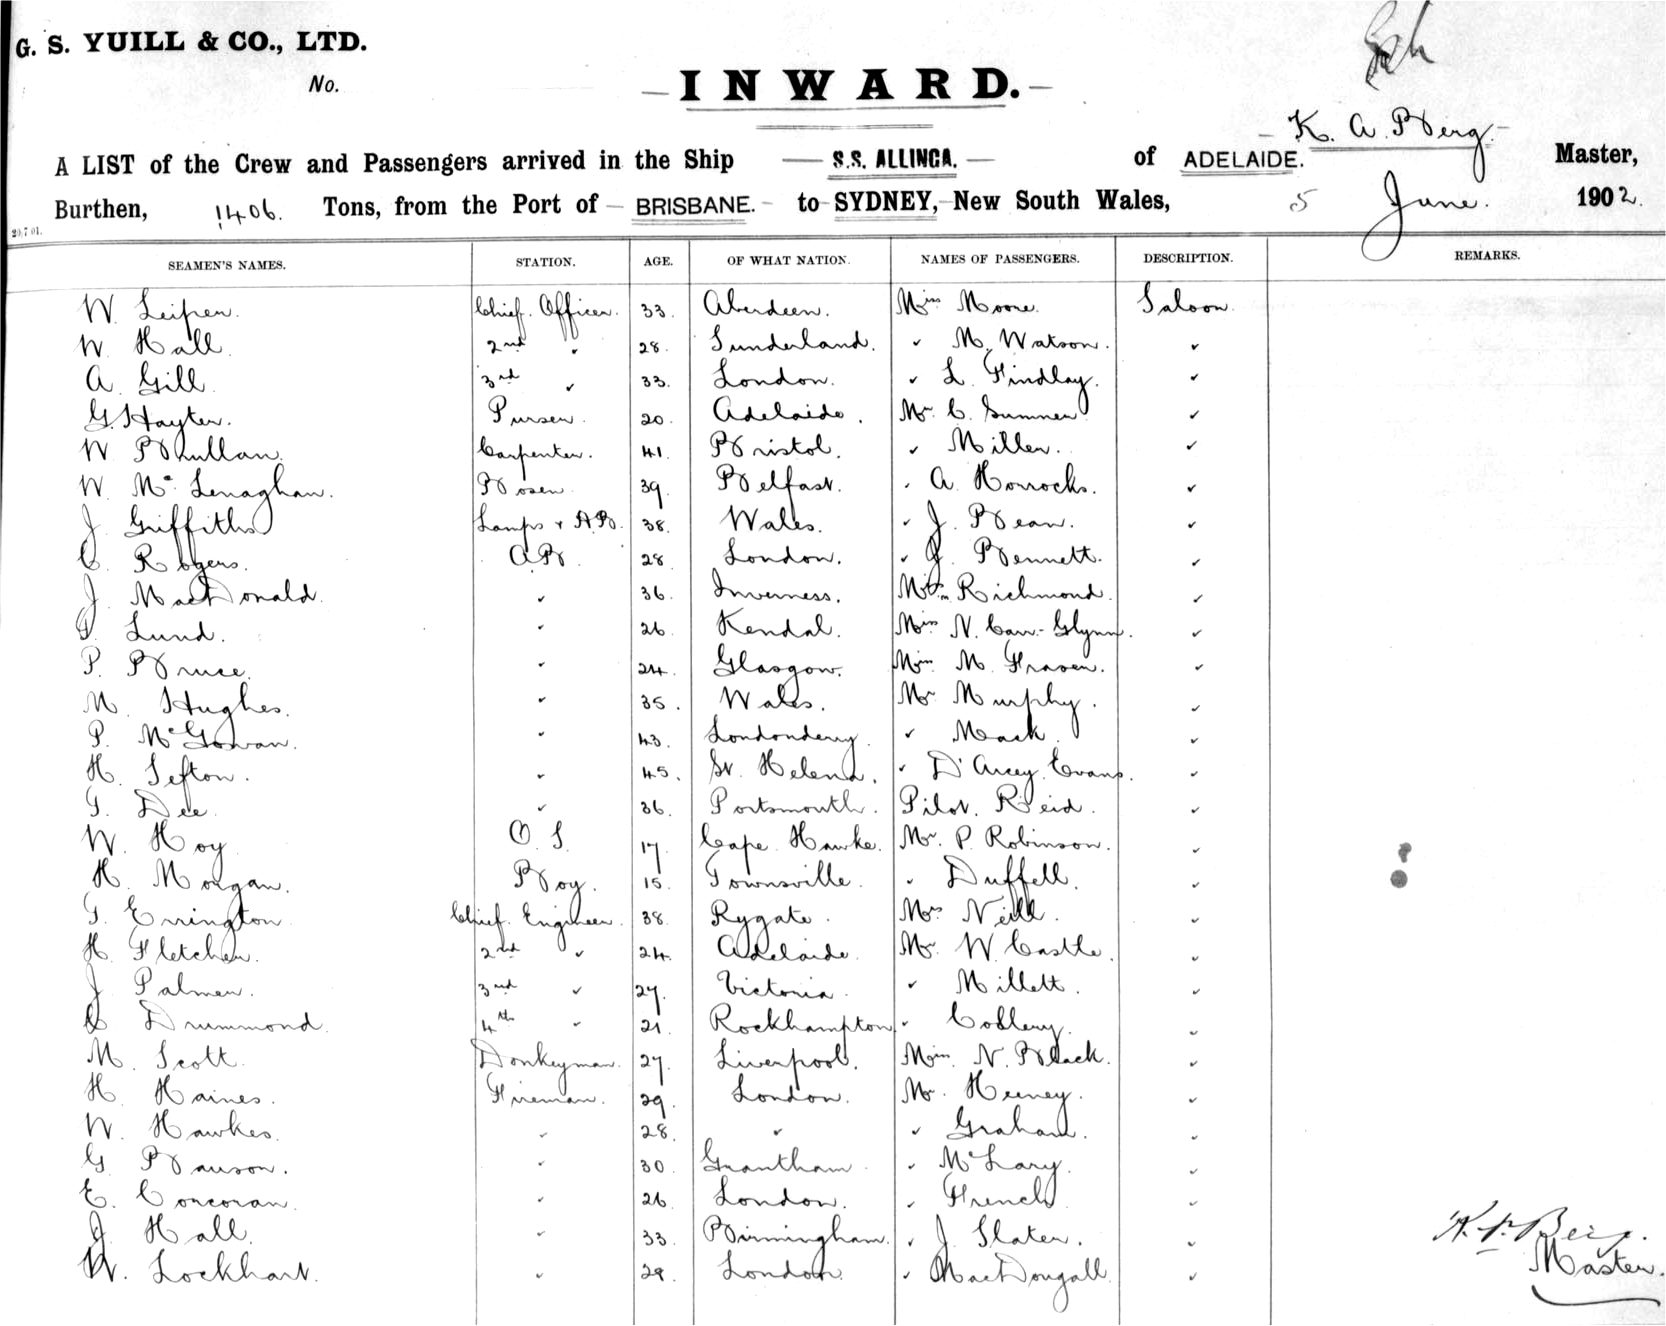 G. S. YUILL & CO., LTD.
No.
INWARD.
K. A. Berg
A LIST of the Crew and Passengers arrived in the Ship S.S. ALLINGA. of ADELAIDE. Master,
Burthen, 1406. Tons, from the Port of BRISBANE. to SYDNEY, New South Wales, 5 June. 1902.
20.7.01.
SEAMEN'S NAMES. STATION. AGE. OF WHAT NATION. NAMES OF PASSENGERS. DESCRIPTION. REMARKS.
W. Leiper. Chief. Officer. 33. Aberdeen. Miss Moore. Saloon.
W. Hall. 2nd " 28. Sunderland. " M. Watson. "
A. Gill. 3rd " 33. London. " L. Findlay. "
G. Hayter. Purser. 20. Adelaide. Mr. C. Sumner "
W. Carpenter. 41. Bristol. " Miller. "
W. Mc Lenaghan. Bosen. 39. Belfast. " A. Horrocks. "
J. Griffiths Lamps & AB. 38. Wales. " J. Bean. "
C. Rogers. AB. 28. London. " J. Bennett. "
J. MacDonald. " 36. Inverness. Richmond. "
T. Lund. " 26. Kendal. Miss N. Carr-Glynn. "
P. Bruce. " 24. Glasgow. Miss M. Fraser. "
M. Hughes. " 35. Wales. Mr Murphy. "
P. McGowan. " 43. Londonderry. " Mack. "
H. Sefton. " 45. St. Helena. " D'Arcey Evans. "
T. Dee. " 36. Portsmouth. Pilot. Reid. "
W. Hoy O.S. 17. Cape Hawke. Mr. P. Robinson. "
H. Morgan. Boy. 15. Townsville. " Duffell. "
T. Errington Chief. Engineer. 38. Rygate. Mrs Neill. "
H. Fletcher. 2nd " 24. Adelaide. Mr. W. Castle. "
J. Palmer. 3rd " 27. Victoria. " Millett. "
C Drummond. 4th " 21. Rockhampton. " "
M. Scott. Donkeyman. 27. Liverpool. Miss. N. Black. "
H. Haines. Fireman. 29. London. Mr. Heeney. "
W. Hawkes. " 28. " " Graham. "
G. " 30. Grantham. " McLary. "
E. Corcoran. " 26. London. " French "
J. Hall. " 33. Birmingham. " J. Slater. "
W. Lockhart. " 29. London. " MacDougall. "
K. A. Berg.
Master.